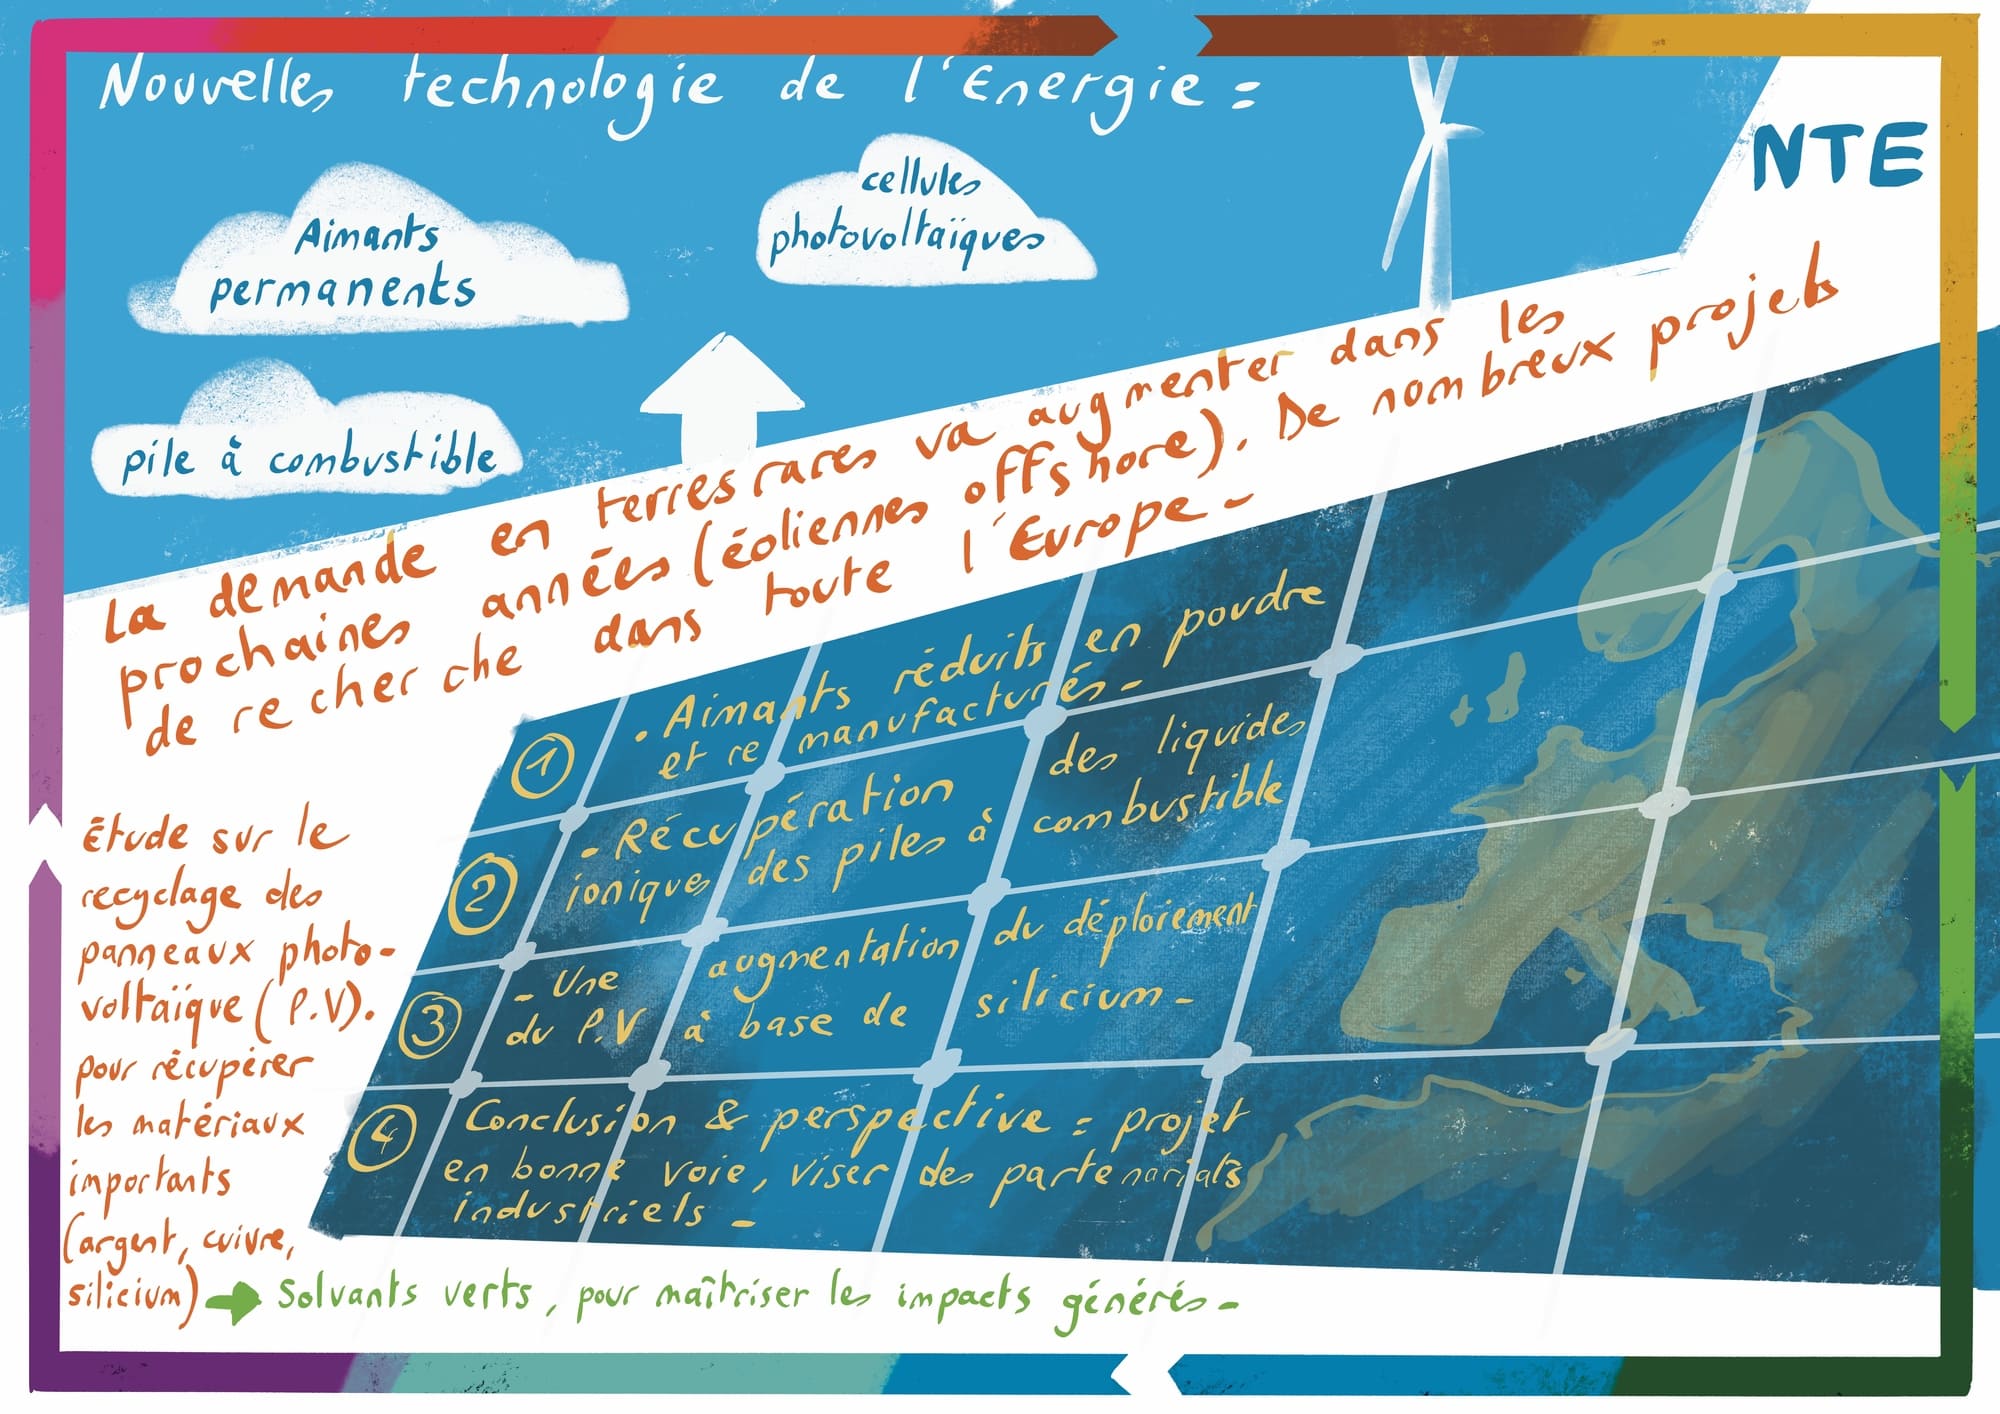 Nouvelles technologie de l'Energie =
NTE
Aimants
permanents
cellules
photovoltaïques
pile à combustible
La demande en terres rares va augmenter dans les
prochaines années (éoliennes offshore). De nombreux projets
de recherche dans toute l'Europe -
Étude sur le
recyclage des
panneaux photo-
voltaïque (P.V).
pour récupérer
les matériaux
importants
(argent, cuivre,
silicium)
Solvants verts, pour maîtriser les impacts générés -
1 • Aimants réduits en poudre
et re manufacturés -
2 - Récupération des liquides
ioniques des piles à combustible
3 - Une augmentation du déploiement
du P.V à base de silicium -
4 Conclusion & perspective = projet
en bonne voie, viser des partenariats
industriels -